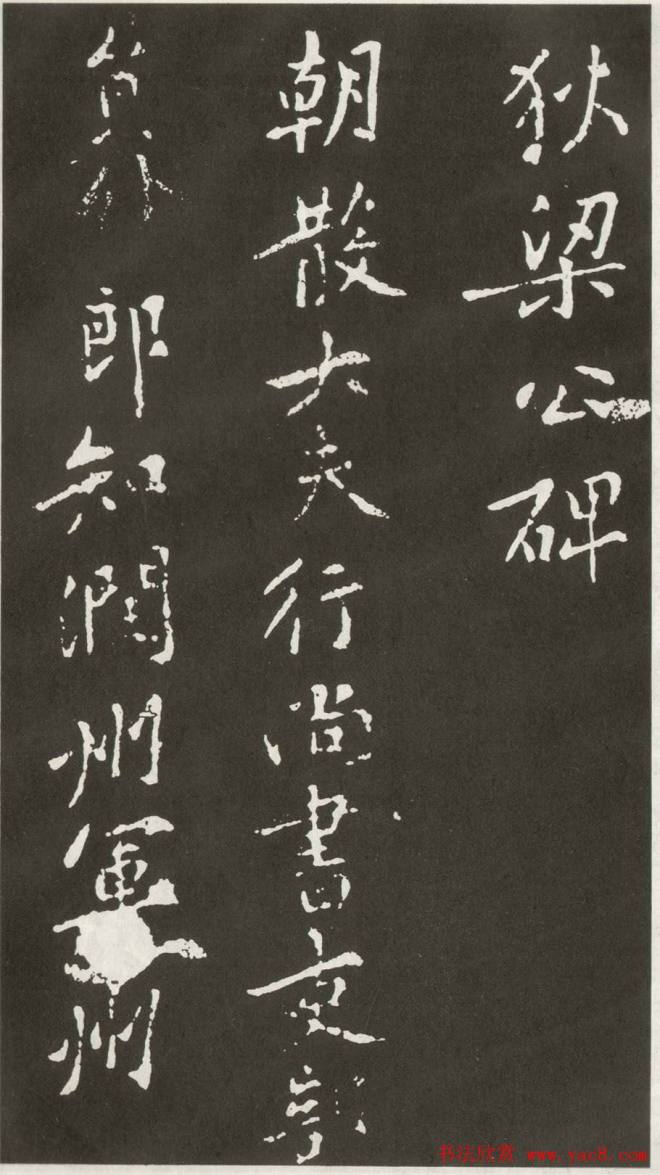 狄梁公碑
朝散大夫行尚書吏部
員外郎知潤州軍州
书法欣赏 www.yac8.com